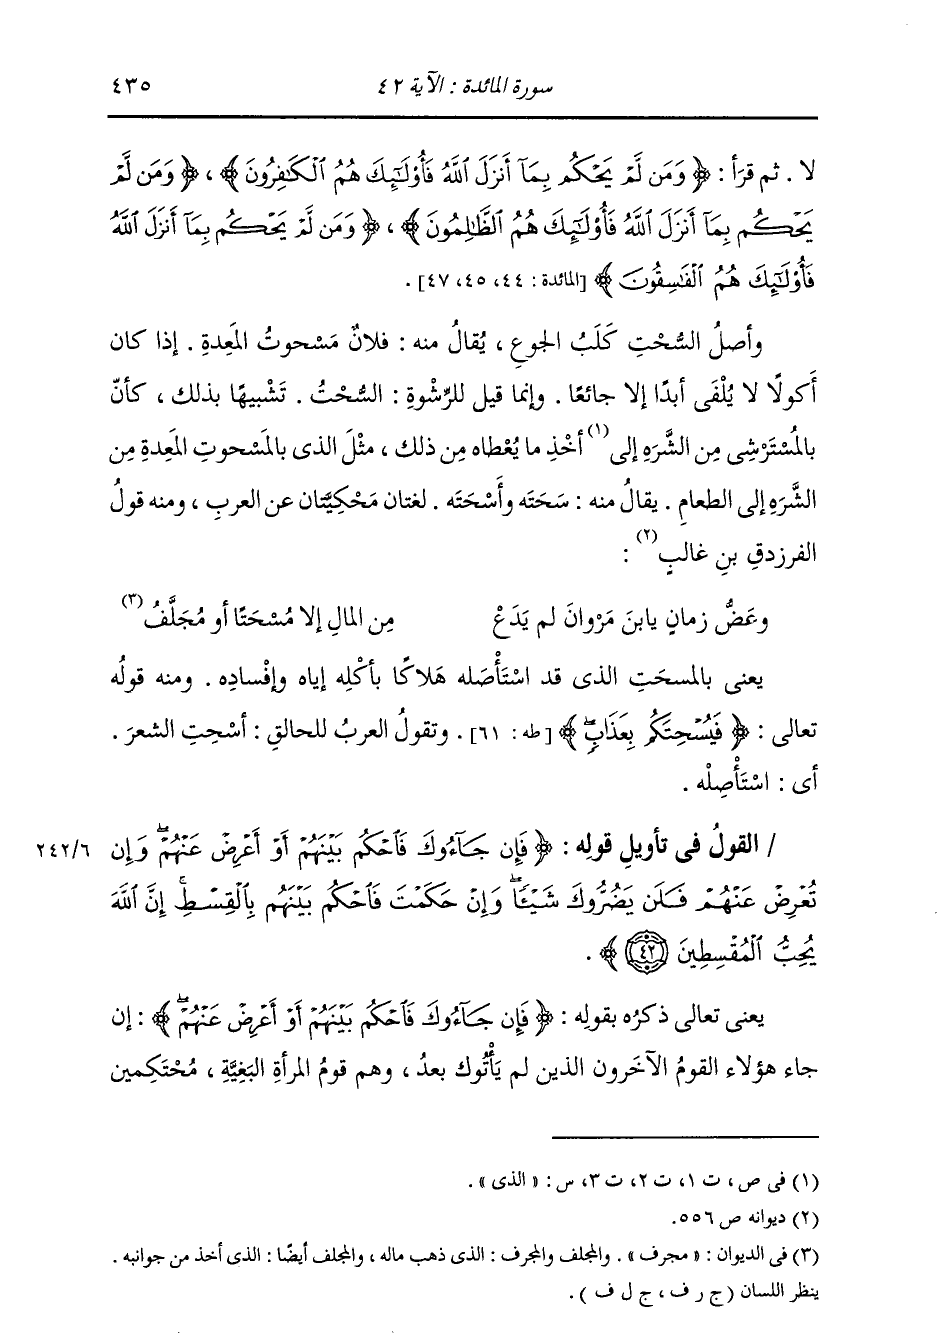 سورة المائدة : الآية ٤٢ ٤٣٥
لا . ثم قرَأ : ﴿ وَمَن لَّمْ يَحْكُم بِمَآ أَنزَلَ ٱللَّهُ فَأُوْلَٰٓئِكَ هُمُ ٱلْكَٰفِرُونَ ﴾ ، ﴿ وَمَن لَّمْ
يَحْكُم بِمَآ أَنزَلَ ٱللَّهُ فَأُوْلَٰٓئِكَ هُمُ ٱلظَّٰلِمُونَ ﴾ ، ﴿ وَمَن لَّمْ يَحْكُم بِمَآ أَنزَلَ ٱللَّهُ
فَأُوْلَٰٓئِكَ هُمُ ٱلْفَٰسِقُونَ ﴾ [المائدة : ٤٤، ٤٥، ٤٧] .
وأصلُ السُّحْتِ كَلَبُ الجوعِ ، يُقالُ منه : فلانٌ مَسْحوتُ المَعِدةِ . إذا كان
أَكولًا لا يُلْفَى أبدًا إلا جائعًا . وإنما قيل للرِّشْوةِ : السُّحْتُ . تَشْبيهًا بذلك ، كأنّ
بالمُسْتَرْشِى مِن الشَّرَهِ إلى (١) أخْذِ ما يُعْطاه مِن ذلك ، مثْلَ الذى بالمَسْحوتِ المَعِدةِ مِن
الشَّرَهِ إلى الطعامِ . يقالُ منه : سَحَته وأَسْحَته . لغتان مَحْكِيَّتان عن العربِ ، ومنه قولُ
الفرزدقِ بنِ غالبٍ (٢) :
وعَضُّ زمانٍ يابنَ مَرْوانَ لم يَدَعْ مِن المالِ إلا مُسْحَتًا أو مُجَلَّفُ (٣)
يعنى بالمسحَتِ الذى قد اسْتَأْصَله هَلاكًا بأكْلِه إياه وإفْسادِه . ومنه قولُه
تعالى : ﴿ فَيُسْحِتَكُم بِعَذَابٍۖ ﴾ [طه : ٦١] . وتقولُ العربُ للحالقِ : أسْحِتِ الشعرَ .
أى : اسْتَأْصِلْه .
/ القولُ فى تأويلِ قولِه : ﴿ فَإِن جَآءُوكَ فَٱحْكُم بَيْنَهُمْ أَوْ أَعْرِضْ عَنْهُمْۖ وَإِن ٢٤٢/٦
تُعْرِضْ عَنْهُمْ فَلَن يَضُرُّوكَ شَيْـًٔاۖ وَإِنْ حَكَمْتَ فَٱحْكُم بَيْنَهُم بِٱلْقِسْطِۚ إِنَّ ٱللَّهَ
يُحِبُّ ٱلْمُقْسِطِينَ ٤٢ ﴾ .
يعنى تعالى ذكرُه بقولِه : ﴿ فَإِن جَآءُوكَ فَٱحْكُم بَيْنَهُمْ أَوْ أَعْرِضْ عَنْهُمْۖ ﴾ : إن
جاء هؤلاء القومُ الآخَرون الذين لم يَأْتُوك بعدُ ، وهم قومُ المرأةِ البَغِيَّةِ ، مُحْتَكِمين
(١) فى ص ، ت ١، ت ٢، ت ٣، س : « الذى » .
(٢) ديوانه ص ٥٥٦.
(٣) فى الديوان : « مجرف » . والمجلف والمجرف : الذى ذهب ماله ، والمجلف أيضًا : الذى أخذ من جوانبه .
ينظر اللسان (ج ر ف ، ج ل ف ) .